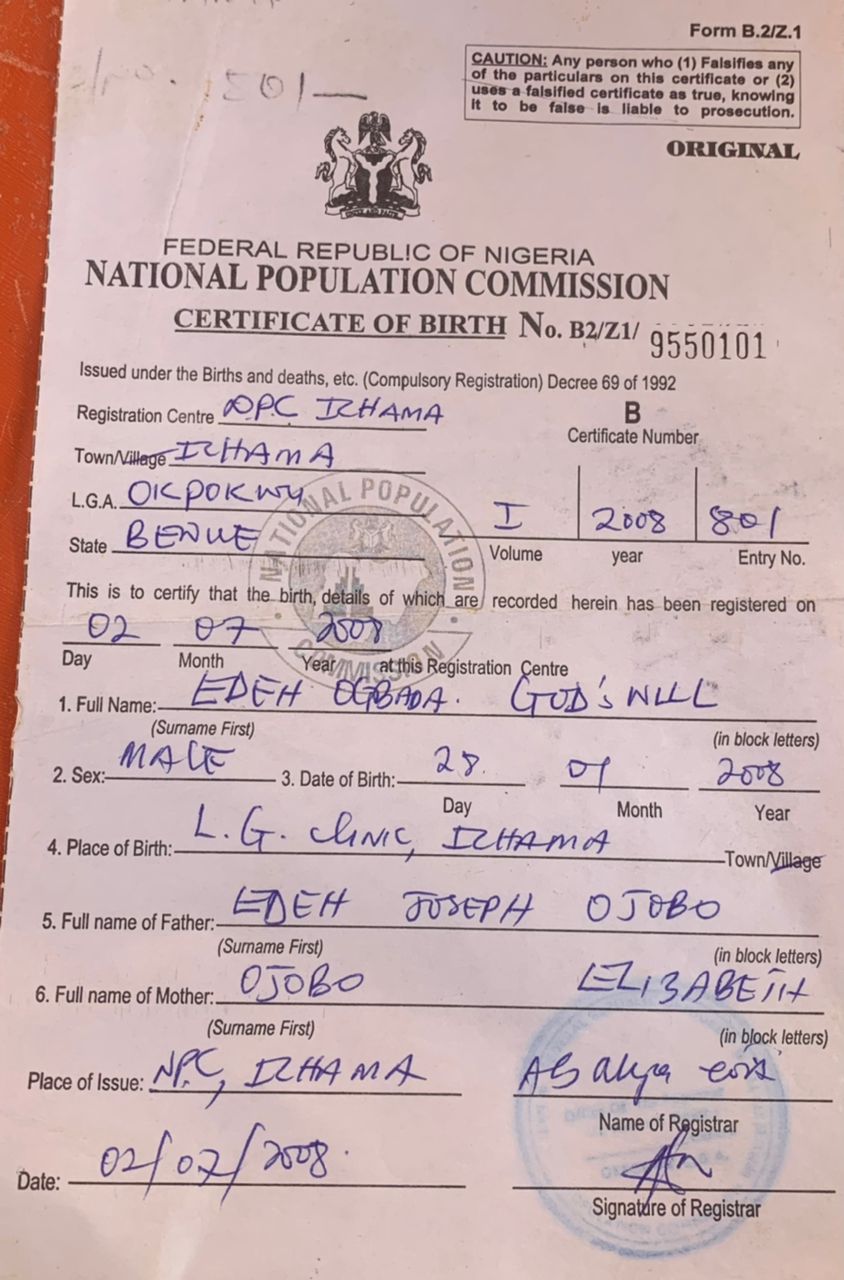 Form B.2/Z.1
CAUTION: Any person who (1) Falsifies any
of the particulars on this certificate or (2)
uses a falsified certificate as true, knowing
it to be false is liable to prosecution.
ORIGINAL
801
FEDERAL REPUBLIC OF NIGERIA
NATIONAL POPULATION COMMISSION
CERTIFICATE OF BIRTH No. B2/Z1/ 9550101
Issued under the Births and deaths, etc. (Compulsory Registration) Decree 69 of 1992
Registration Centre NPC
B
Certificate Number
Town/Village
L.G.A. OKPOKWU
State BENUE
I 2008 801
Volume year Entry No.
NATIONAL POPULATION COMMISSION
This is to certify that the birth, details of which are recorded herein has been registered on
02 07 2008
Day Month Year at this Registration Centre
1. Full Name: EDEH OGBADA. GOD'S WILL
(Surname First) (in block letters)
2. Sex: MALE 3. Date of Birth: 28. 01 2008
Day Month Year
4. Place of Birth: L.G. CLINIC, Town/Village
5. Full name of Father: EDEH JOSEPH OJOBO
(Surname First) (in block letters)
6. Full name of Mother: OJOBO ELIZABETH
(Surname First) (in block letters)
Place of Issue: NPC,
Name of Registrar
Date: 02/07/2008.
Signature of Registrar